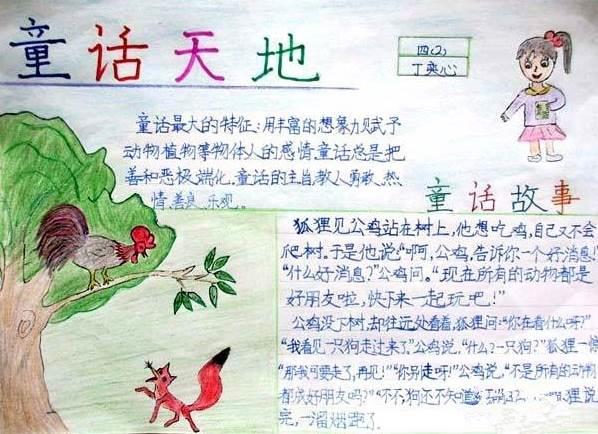 童话天地
四(2)
丁奕心
童话最大的特征:用丰富的想象力赋予
动物植物等物体人的感情.童话总是把
善和恶极端化.童话的主旨教人勇敢、热
情、善良、乐观。
童话故事
狐狸见公鸡站在树上,他想吃鸡,自己又不会
爬树。于是他说:“啊,公鸡,告诉你一个好消息!”
“什么好消息?”公鸡问。“现在所有的动物都是
好朋友啦,快下来一起玩吧!”
公鸡没下树,却往远处看着.狐狸问:“你在看什么呀?”
“我看见一只狗走过来了,”公鸡说.“什么?一只狗?”狐狸一惊
“那我可要走了,再见!”“你别走呀!”公鸡说,“不是所有的动物
都成好朋友吗?”“不,不,狗还不知道 狐狸说
完,一溜烟跑了.